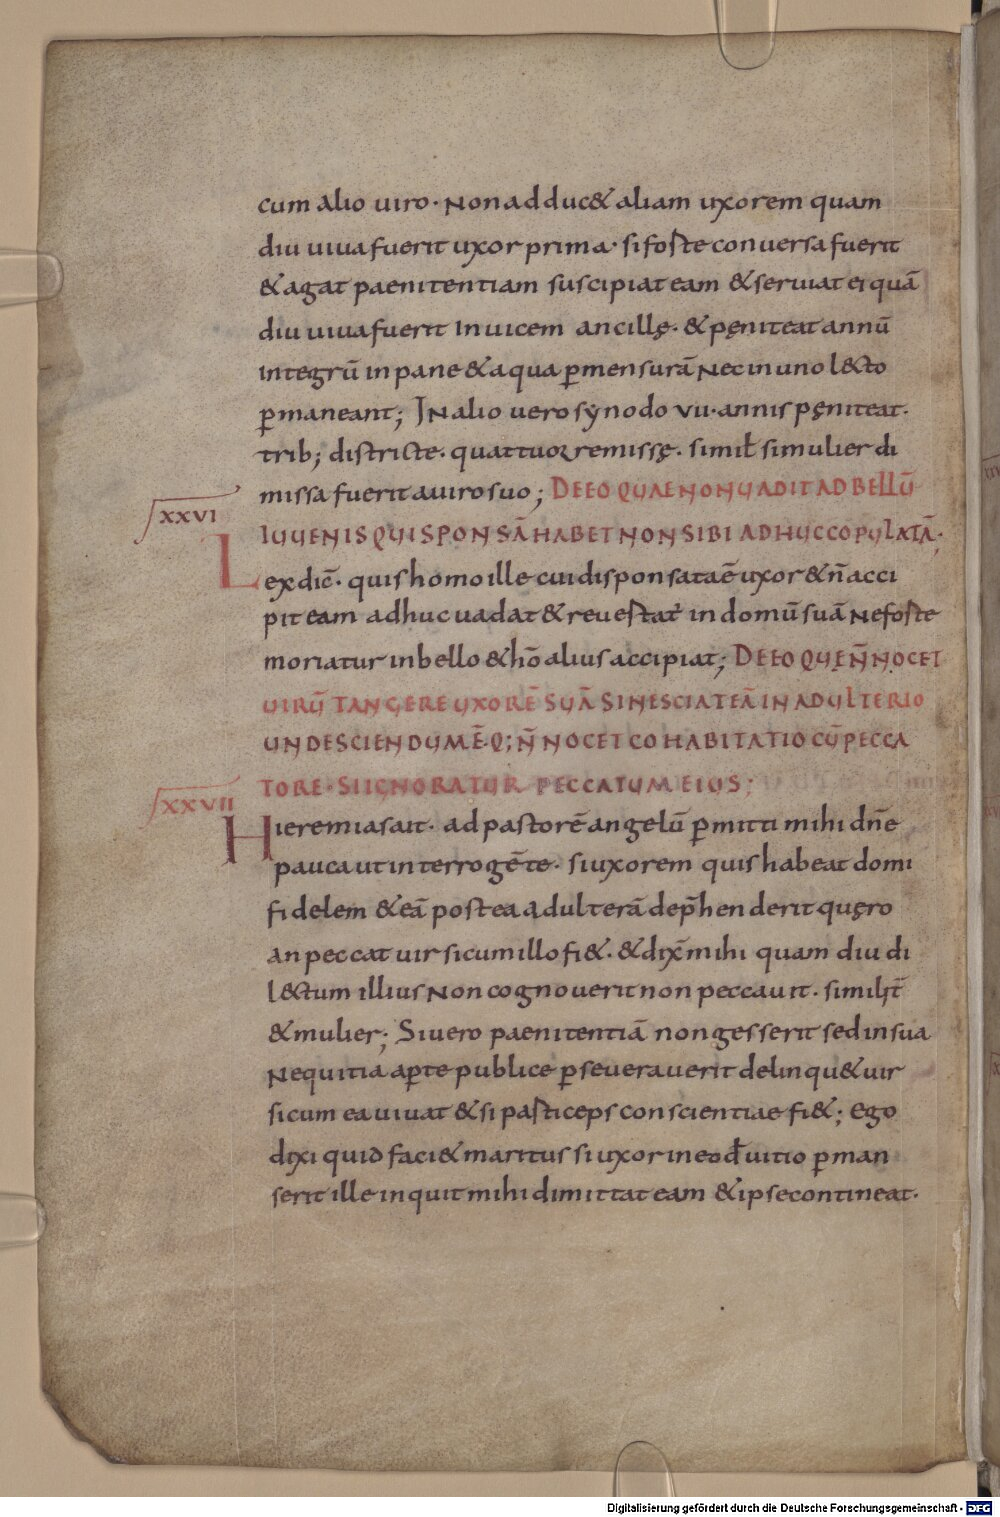 cum alio uiro· Non adduc& aliam uxorem quam
diu uiua fuerit uxor prima· si foste conuersa fuerit
& agat paenitentiam suscipiat eam & seruiat ei quā
diu uiua fuerit In uicem ancillę· & pęniteat annū
integrū in pane & aqua ꝑ mensurā Nec in uno lecto
ꝑmaneant; IN alio uero synodo VII· annis pęniteat·
trib; districte· quattuor remissę· simił si mulier di
missa fuerit a uiro suo; DE EO QUAE NON UADIT AD BELLŪ
XXVI
IUUENIS QUI SPONSĀ HABET NON SIBI ADHUC COPULATĀ;
Lex dic̄· quis homo ille cui disponsata ē uxor & n̄ acci
pit eam adhuc uadat & reuestat in domū suā Ne foste
moriatur in bello & hō alius accipiat; DE EO QUEN̄ NOCET
UIRŪ TANGERE UXORĒ SUĀ SI NESCIAT EĀ IN ADULTERIO
UNDE SCIENDUM Ē· Q; N̄ NOCET COHABITATIO CŪ PECCA
TORE· SI IGNORATUR PECCATUM EIUS;
XXVII
Hieremias ait· ad pastorē angelū ꝑmitti mihi dn̄e
pauca ut interrogē te· si uxorem quis habeat domi
fidelem & eā postea adulterā dep̄henderit quęro
an peccat uir si cum illo fi&· & dix̄ mihi quam diu di
lectum illius Non cognouerit non peccauit· similit̄
& mulier; Si uero paenitentiā non gesserit sed in sua
Nequitia aꝑte publice ꝑseuerauerit delinqu& uir
si cum ea uiuat & si pasticeps conscientiae fi&; Ego
dixi quid faci& maritus si uxor in eod̄ uitio ꝑman
serit ille inquit mihi dimittat eam & ipse contineat·
Digitalisierung gefördert durch die Deutsche Forschungsgemeinschaft - DFG